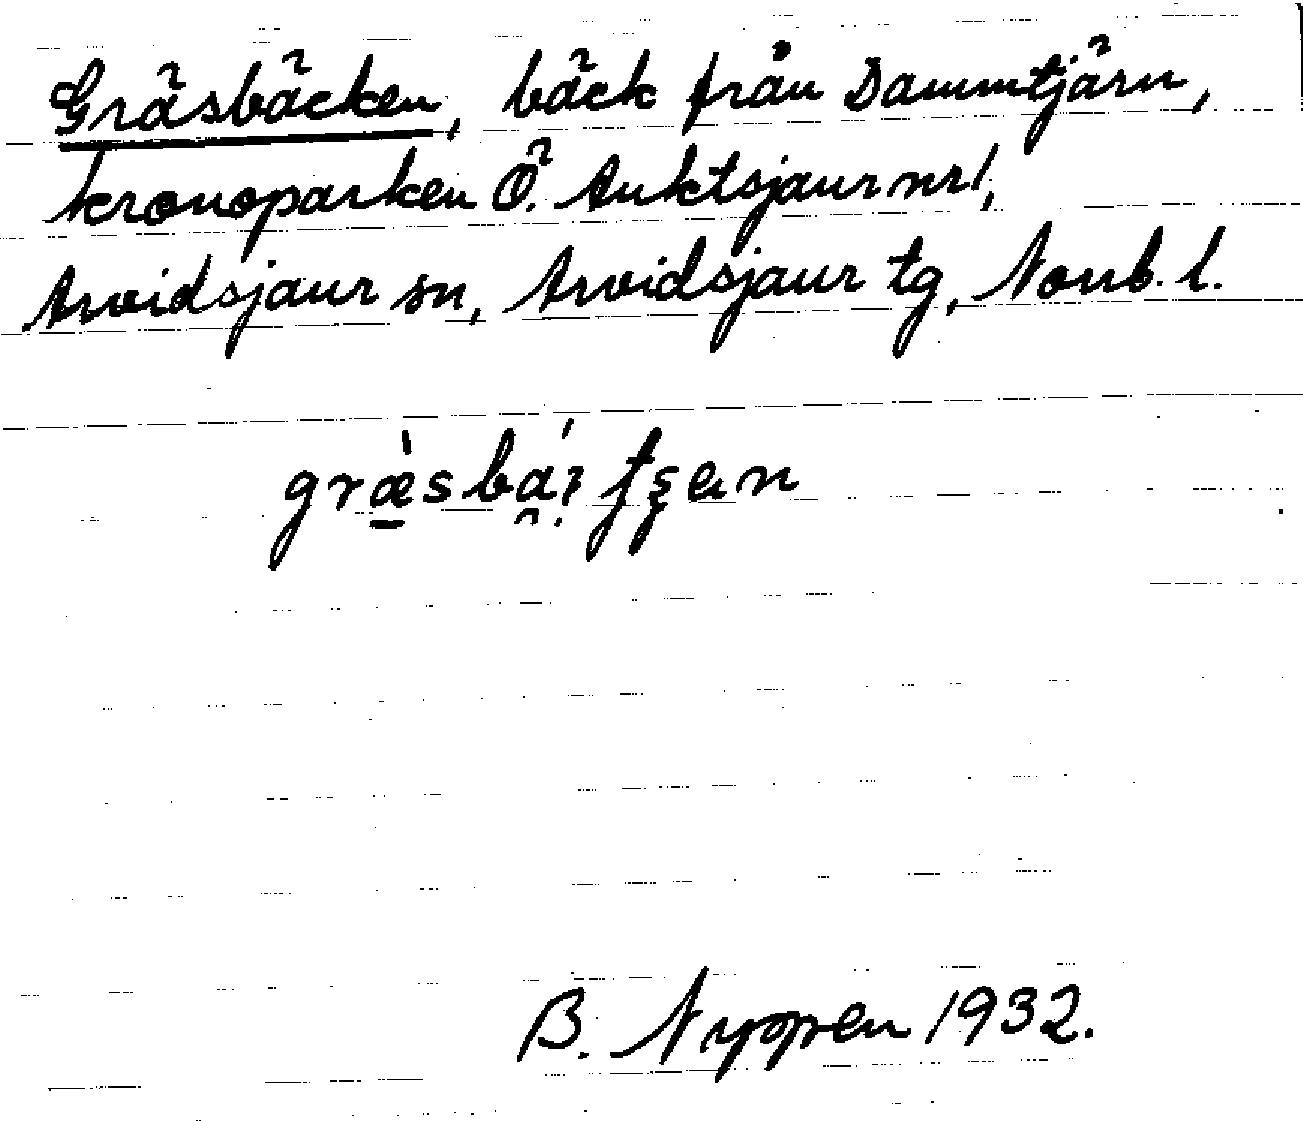 Gräsbäcken, bäck från Dammtjärn,
kronoparken Ö. Auktsjaur nr 1,
Arvidsjaur sn, Arvidsjaur tg, Norrb. l.
B. Nyppen 1932.